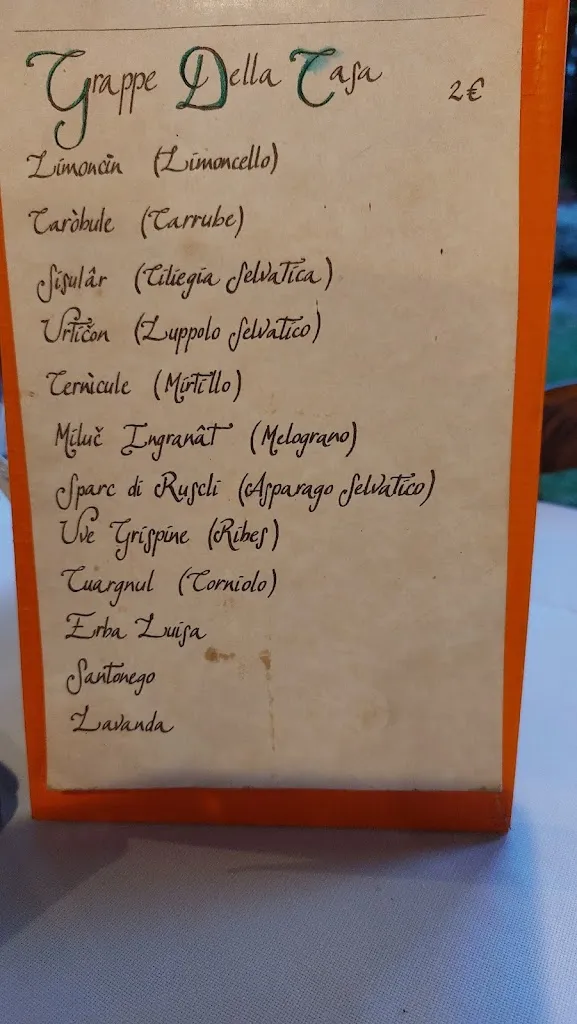 Grappe Della Casa 2€
Limoncin (Limoncello)
Caròbule (Carrube)
Sisulâr (Ciliegia Selvatica)
Urticòn (Luppolo Selvatico)
Cernicule (Mirtillo)
Miluč Ingranât (Melograno)
Sparc di Ruscli (Asparago Selvatico)
Uve Grispine (Ribes)
Cuargnul (Corniolo)
Erba Luisa
Santonego
Lavanda